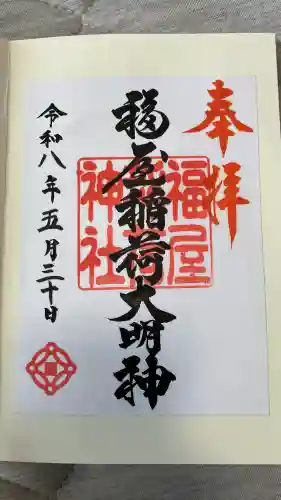 奉拝
福屋稲荷大明神
福屋稲荷神社
令和八年五月三十日